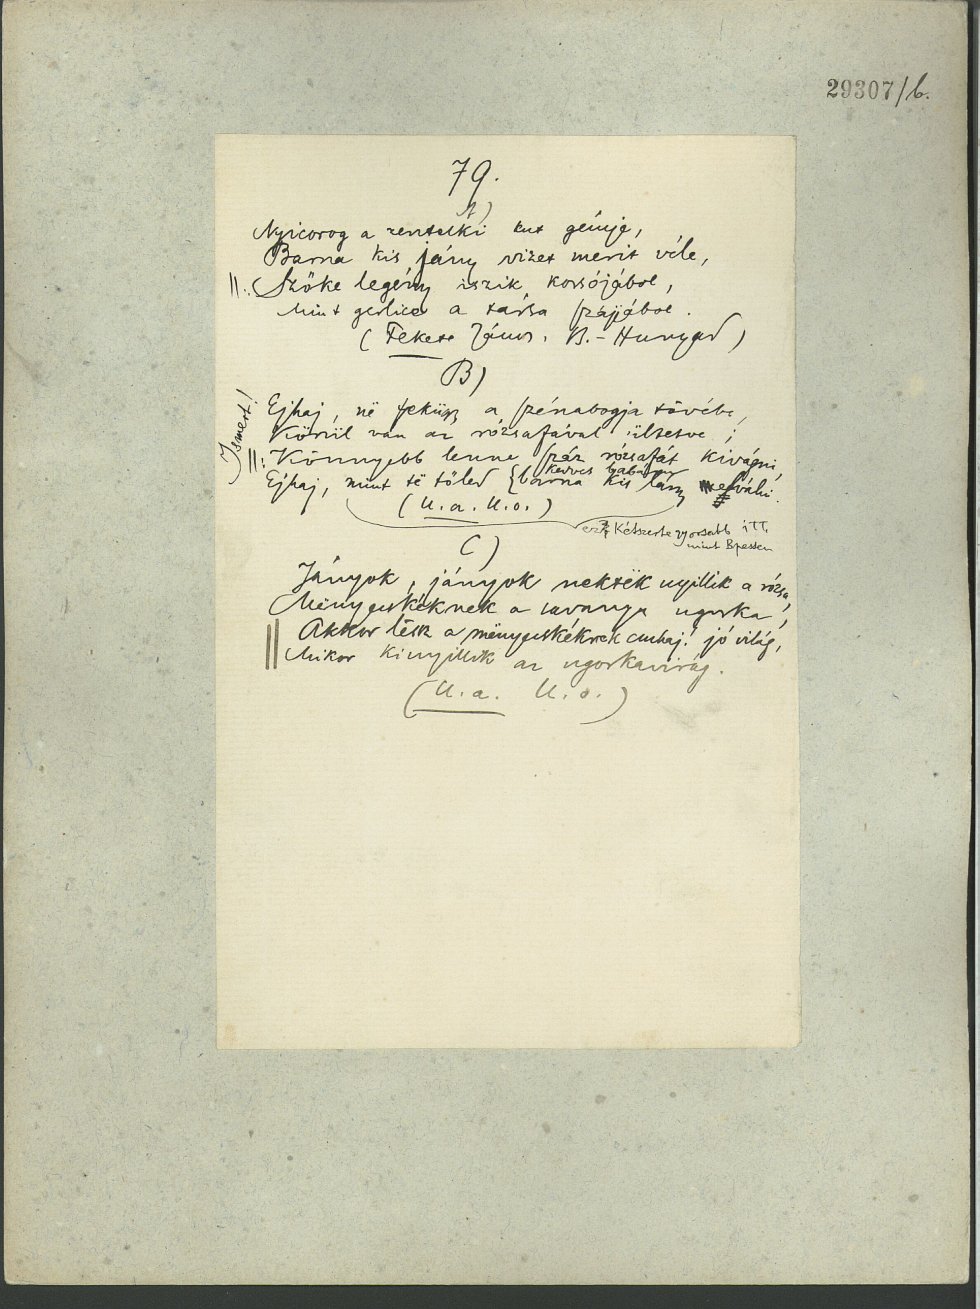 29307/b.
79.
A)
Nyicorog a zentelki kut gémje,
Barna kis jány vizet merit véle,
||: Szőke legény iszik korsójábol,
Mint gerlice a társa szájjábol.
(Fekete János. B.-Hunyad)
B)
Ismert!
Ejhaj, në feküsz a szénabogja tövébe,
Körül van az rózsafával ültetve;
||: Könnyebb lenne száz rózsafát kivágni,
kedves babám
Ejhaj, mint të tőled {barna kis lány elválni.
(U. a. U. o.)
Kétszerte gyorsabb itt,
mint Bpesten
C)
Jányok, jányok nektëk nyillik a rózsa,
Mënyecskéknek a savanyu ugorka,
|| Akkor lësz a mënyecskéknek csuhaj! jó világ,
Mikor kinyillik az ugorkavirág.
(U. a. U. o.)